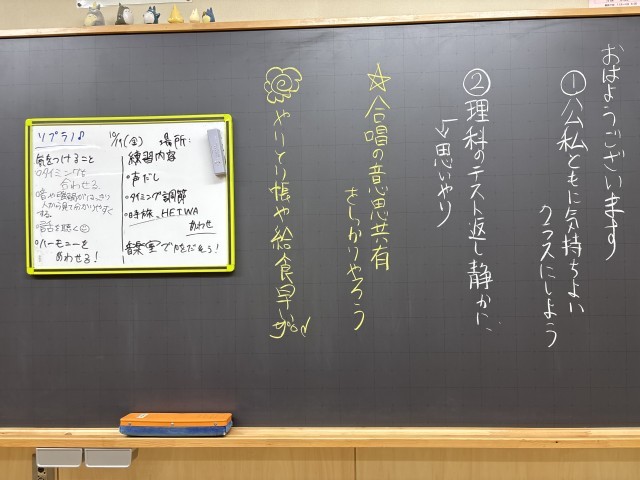 おはようございます
①公私ともに気持ちよい
クラスにしよう
②理科のテスト返し静かに
↓思いやり
☆合唱の意思共有
きっかりやろう
やりとり帳や給食早いgood
ソプラノ♪
気をつけること
○タイミングを
合わせる
人から見て分かりやすく
する。
○話を聴く
○ハーモニーを
あわせる!
(金) 場所:
練習内容
・声だし
・タイミング調節
・時旅、HEIWA
あわせ
音楽室で